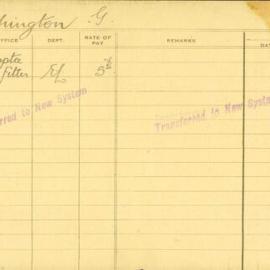 hington G.
OFFICE DEPT. RATE OF PAY REMARKS DA
fitter El 5
rred to New System
Transferred to New System